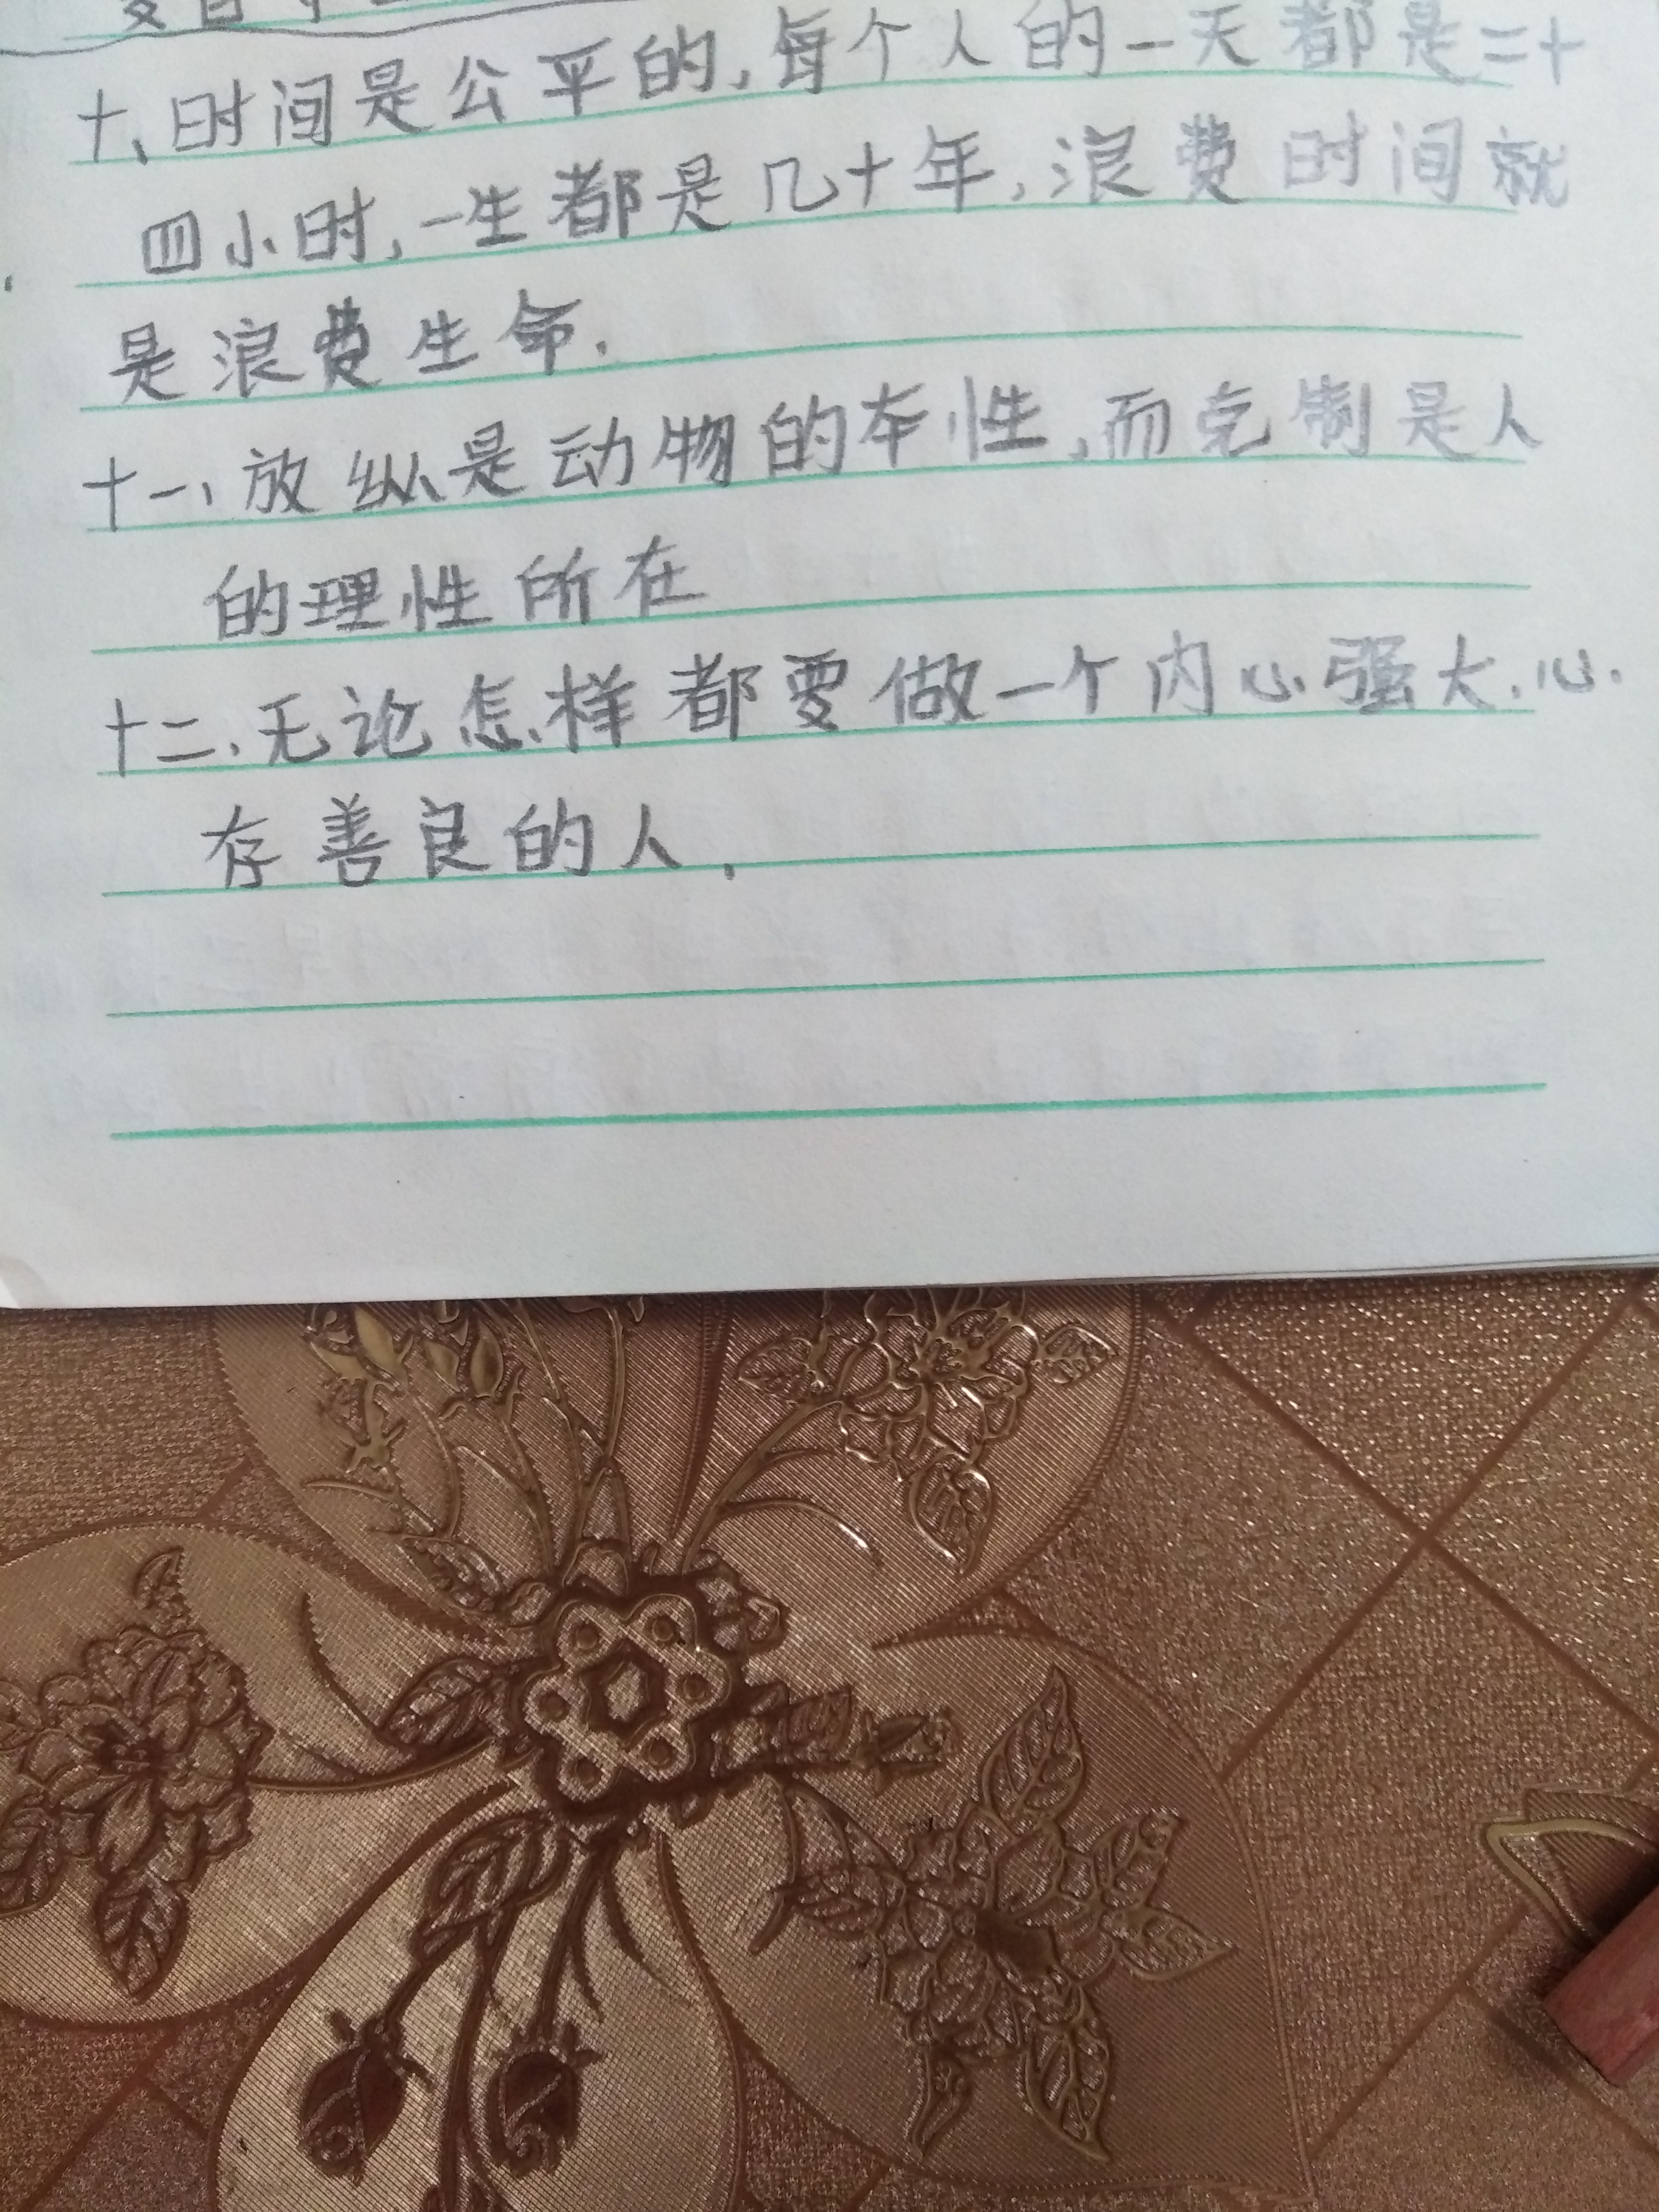 十、时间是公平的,每个人的一天都是二十
四小时,一生都是几十年,浪费时间就
是浪费生命.
十一、放纵是动物的本性,而克制是人
的理性所在
十二、无论怎样都要做一个内心强大.心
存善良的人.